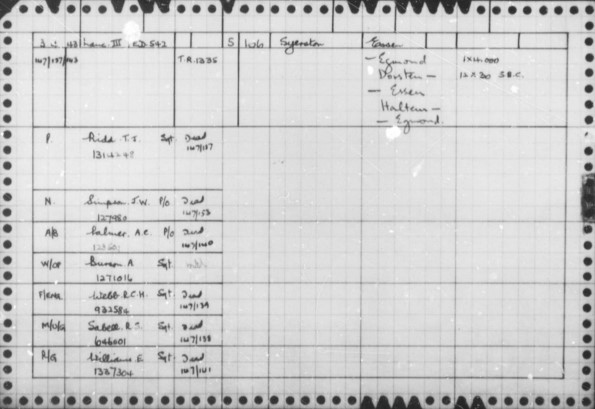 3.4.43 Lanc III. ED.542 S 106 Syerston Essen
147/137/143 T.R.1335 - Egmond 1x4.000
Dorsten - 12x30 S.B.C.
- Essen
Haltern -
- Egmond.
P. Ridd. T.J. Sgt. Dead
147/137
N. Simpson. J.W. P/O Dead
127980 147/153
A/B Palmer. A.C. P/O Dead
147/140
W/OP A Sgt.
1271016
F/ENG. Webb. R.C.H. Sgt. Dead
932584 147/139
M/U/G Sabell. R.S. Sgt. Dead
646001 147/138
R/G Williams. E. Sgt. Dead
1337304 147/141